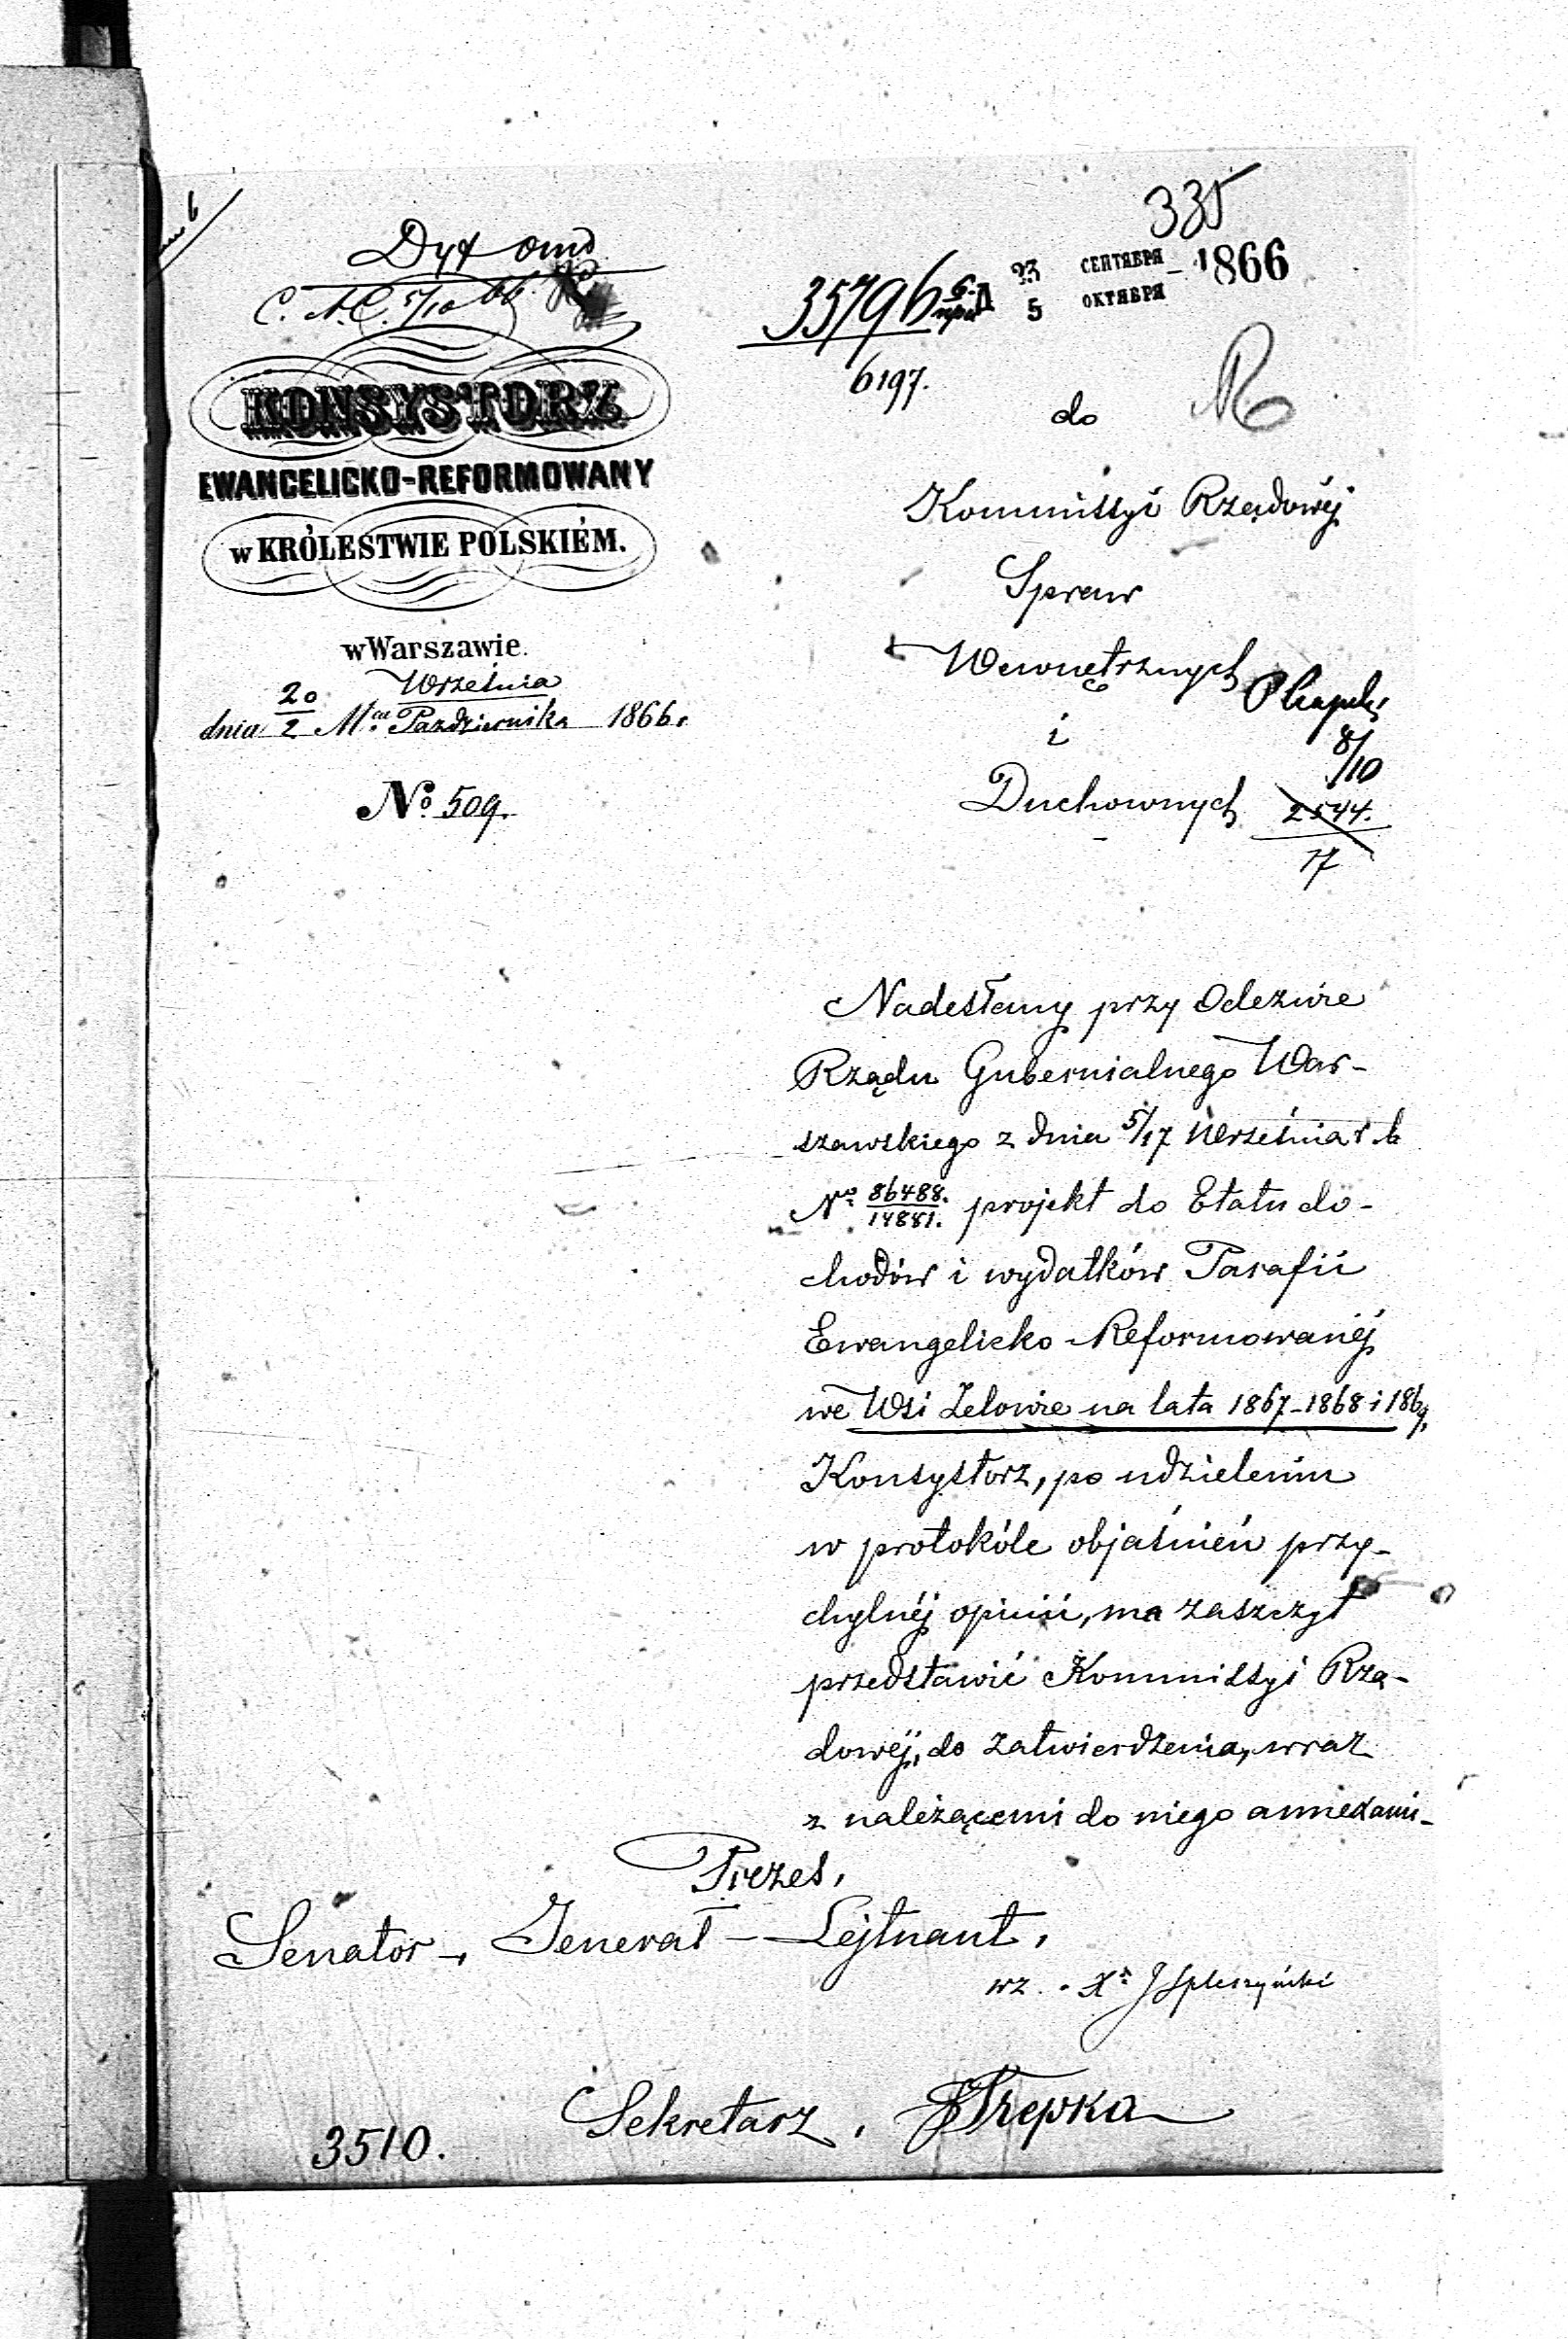 335
Dyr
35796
6197.
23 СЕНТЯБРЯ 1866
5 ОКТЯБРЯ
KONSYSTORZ
EWANGELICKO-REFORMOWANY
w KRÓLESTWIE POLSKIÉM.
w Warszawie.
dnia 20/2 M.ca Września/Października 1866 r.
No. 509.
do
Kommissyi Rządowéj
Spraw
Wewnętrznych
i
Duchownych
8/10
2544.
17
Nadesłany przy Odezwie
Rządu Gubernialnego War-
szawskiego z dnia 5/17 Września r. b
No. 86488./14881. projekt do Etatu do-
chodów i wydatków Parafii
Ewangelicko-Reformowanéj
we Wsi Zelowie na lata 1867-1868 i 1869,
Konsystorz, po udzieleniu
w protokóle objaśnień przy-
chylnéj opinii, ma zaszczyt
przedstawić Kommissyi Rzą-
dowéj, do zatwierdzenia, wraz
z należącemi do niego annexami-
Prezes,
Senator, Jenerał-Lejtnant,
wz. X. J Spleszyński
Sekretarz, Trepka
3510.